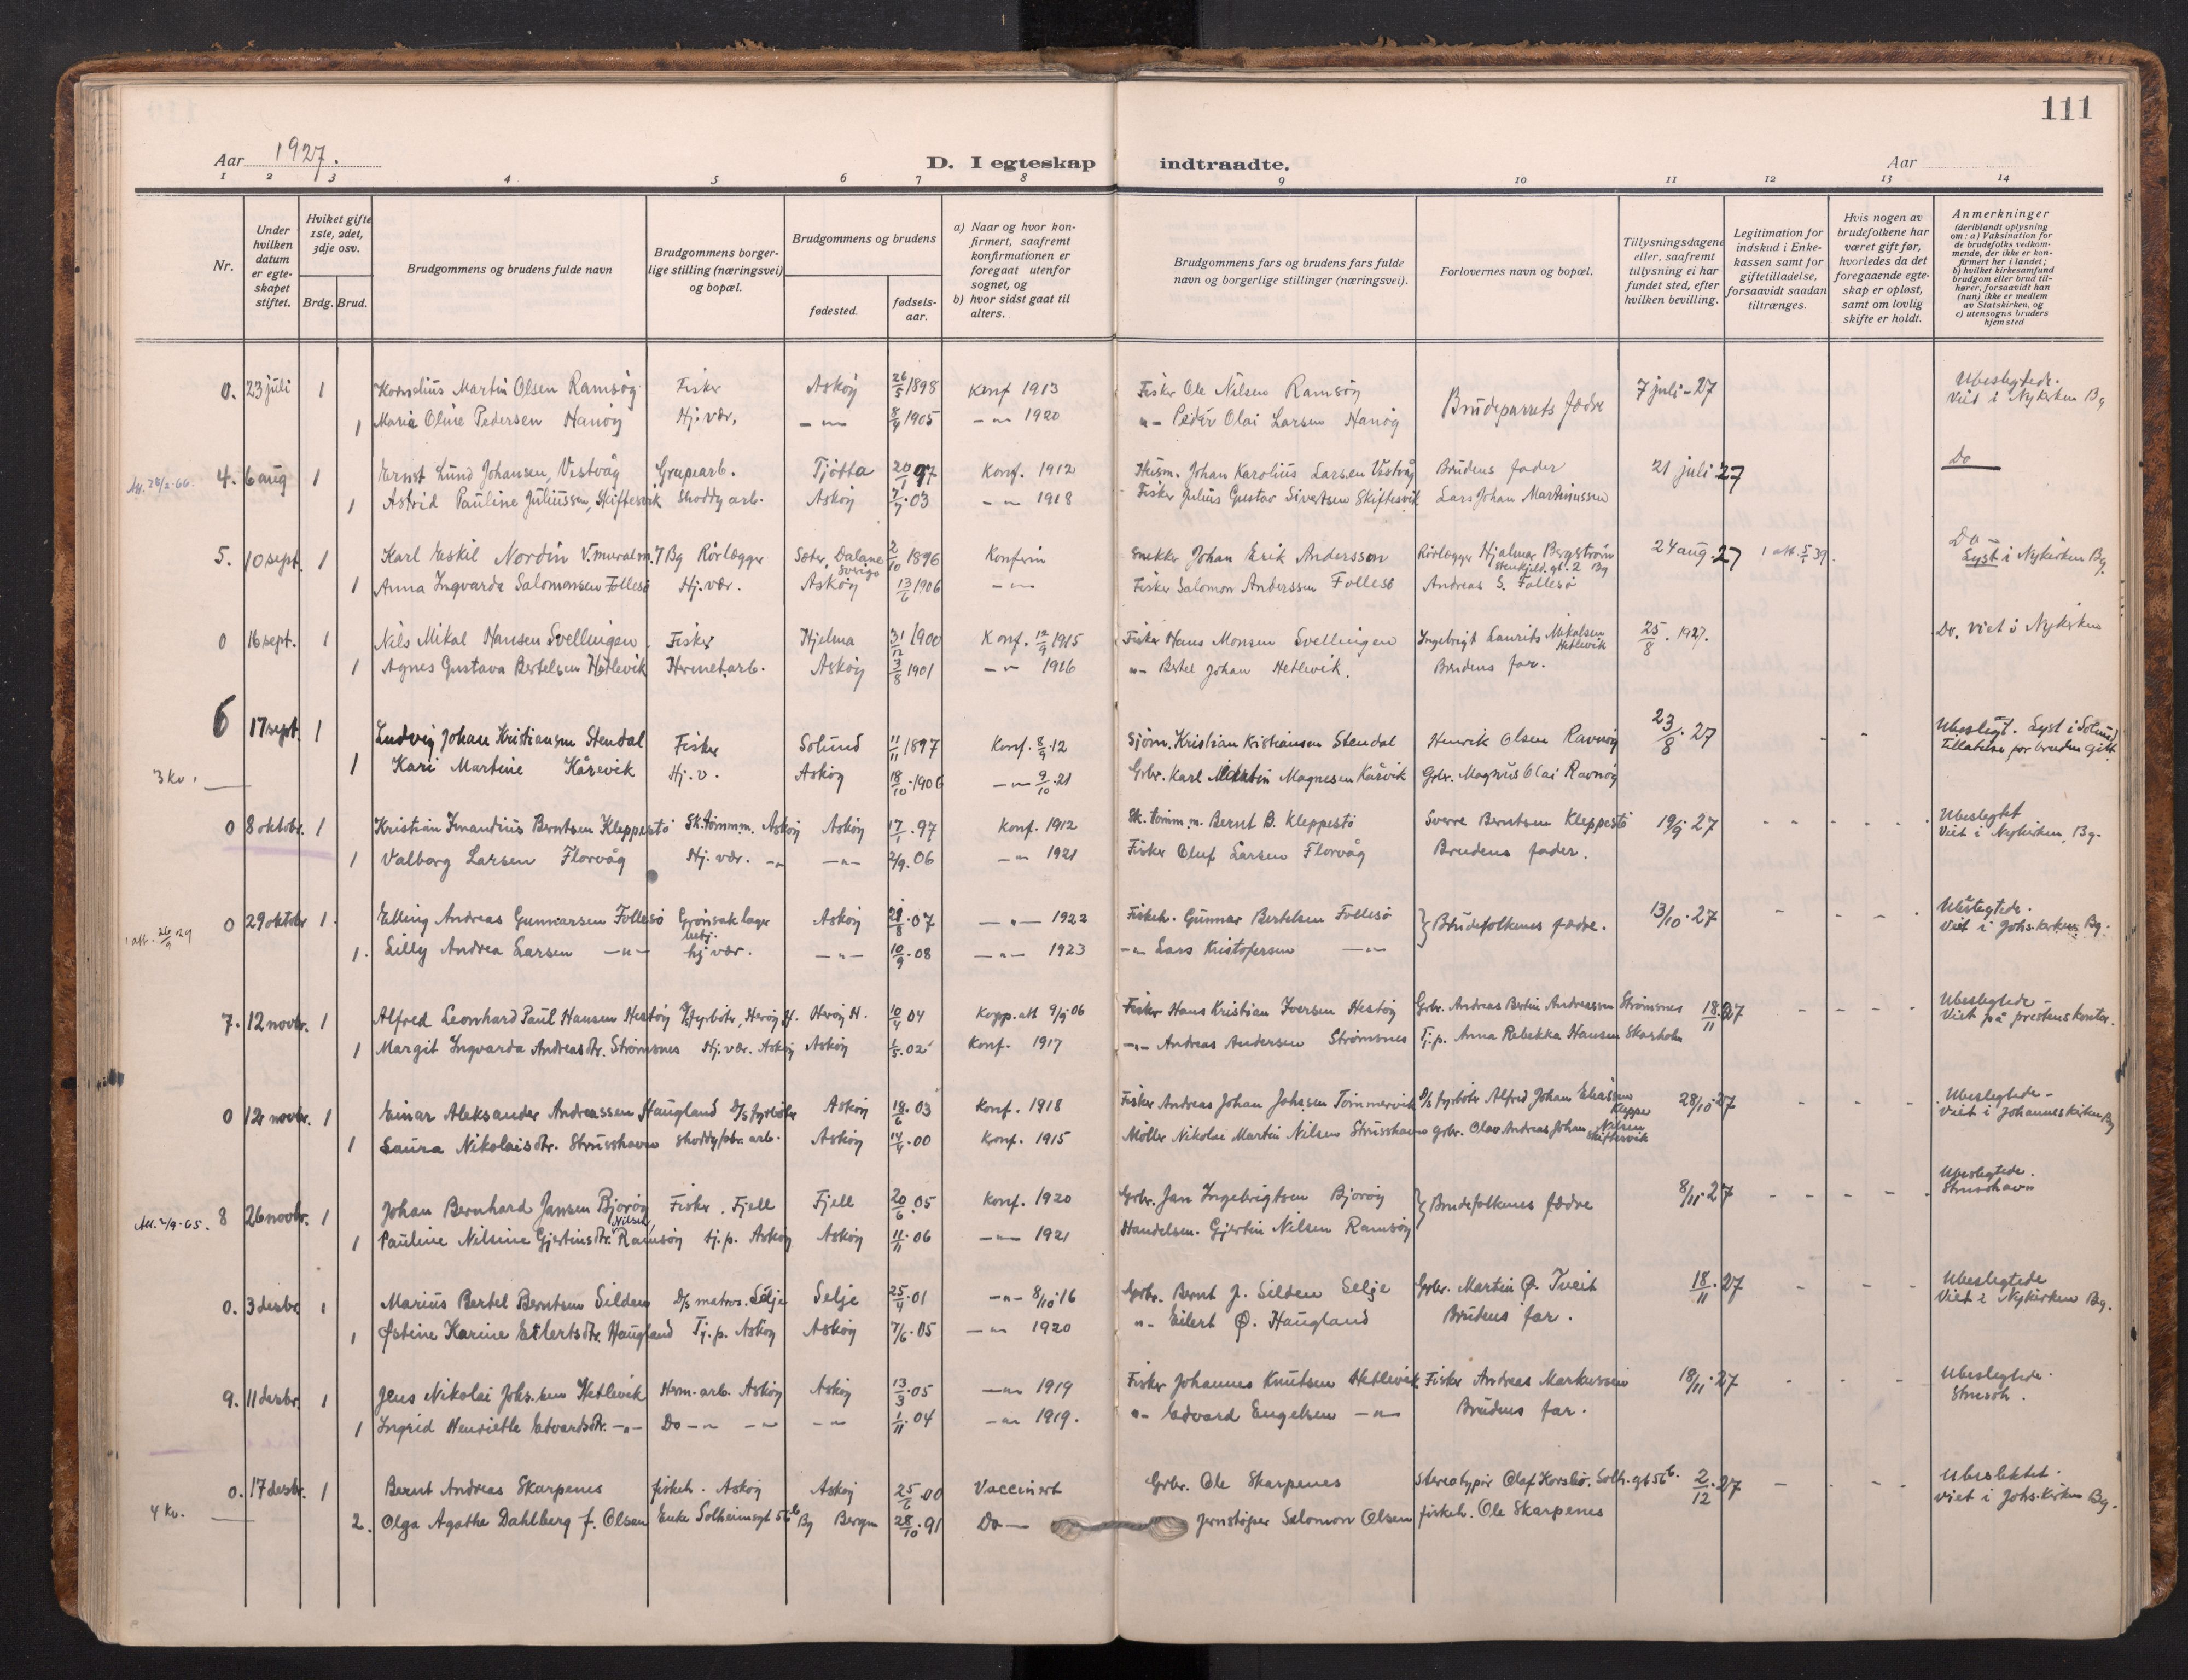 111
Aar 1927.
D. I egteskap indtraadte.
Aar
1 2 3 4 5 6 7 8 9 10 11 12 13 14
Nr.
Under hvilken datum er egteskapet stiftet.
Hviket gifte 1ste, 2det, 3dje osv.
Brdg. Brud.
Brudgommens og brudens fulde navn
Brudgommens borgerlige stilling (næringsvei) og bopæl.
Brudgommens og brudens
fødested.
fødselsaar.
a) Naar og hvor konfirmert, saafremt konfirmationen er foregaat utenfor sognet, og
b) hvor sidst gaat til alters.
Brudgommens fars og brudens fars fulde navn og borgerlige stillinger (næringsvei).
Forlovernes navn og bopæl.
Tillysningsdagene eller, saafremt tillysning ei har fundet sted, efter hvilken bevilling.
Legitimation for indskud i Enkekassen samt for giftetilladelse, forsaavidt saadan tiltrænges.
Hvis nogen av brudefolkene har været gift før, hvorledes da det foregaaende egteskap er opløst, samt om lovlig skifte er holdt.
Anmerkninger (deriblandt oplysning om: a) Vaksination for de brudefolks vedkommende, der ikke er konfirmert her i landet; b) hvilket kirkesamfund brudgom eller brud tilhører, forsaavidt han (hun) ikke er medlem av Statskirken, og c) utensogns bruders hjemsted
0. 23 juli 1 Kornelius Martin Olsen Ramsøy Fisker Askøy 26/5 1898 Konf 1913 Fisker Ole Nilsen Ramsøy Brudeparrets fædre 7 juli-27 Ubeslegtede. Viet i Nykirken Bg
1 Maria Oline Pedersen Hanøy Hj. vær. -"- 8/4 1905 -"- 1920 "- Peder Olai Larsen Hanøy
4. 6 aug 1 Ernst Lund Johansen, Vestvåg Grupearb. Tjøtta 20/1 97 Konf. 1912 Husm. Johan Karolius Larsen Vestvåg Brudens fader 21 juli 27 Do
1 Astrid Pauline Juliussen, Skiftesvik Shoddy arb. Askøy 03 -"- 1918 Fisker Julius Gustav Sivertsen Skiftesvik Lars Johan Martinussen
5. 10 sept. 1 Karl Eskil Nordin V. muralm. 7 Bg Rörlægger Sæter, Dalane Sverige 2/10 1896 Konferm Snekker Johan Erik Andersson Rörlægger Hjalmar Bergström Stenkjeld. gt. 2 Bg 24 aug. 27 1 att. 5/5 39. Do - Lyst i Nykirken Bg.
1 Anna Ingvarda Salomonsen Follesø Hj. vær. Askøy 13/6 1906 -"- Fisker Salomon Anderssen Follesø Andreas S. Follesø
0 16 sept. 1 Nils Mikal Hansen Svellingen Fisker Hjelma 31/12 1900 Konf. 12/9 1915 Fisker Hans Monsen Svellingen Ingebrigt Laurits Mikalsen Hetlevik 25/8. 1927. Do. Viet i Nykirken
1 Agnes Gustava Bertelsen Hetlevik Hermet.arb. Askøy 3/8 1901 -"- 1916 "- Bertel Johan Hetlevik. Brudens far.
6 17 sept. 1 Ludvig Johan Kristiansen Stendal Fisker Solund 11/11 1897 Konf. 8/9.12 Sjøm. Kristian Kristiansen Stendal Henrik Olsen Ravnøy 23/8. 27 - - Ubeslegt. Lyst i Solund Tillatelse for bruden gitt.
3 kv. 1 Kari Martine Kårevik Hj.v. Askøy 18/10.1906 -"- 9/10.21 Grbr. Karl Martin Magnesen Kårvik Grbr. Magnus Olai Ravnøy
0 8 oktobr. 1 Kristian Imandius Berntsen Kleppestø Sk. tømmm. Askøy Askøy 17/1.97 Konf. 1912 Sk. tømm.m. Bernt B. Kleppestø Sverre Berntsen Kleppestø 19/9 27 Ubeslegtet Viet i Nykirken, Bg.
1 Valborg Larsen Florvåg Hj. vær. -"- -"- 2/9.06 -"- 1921 Fisker Oluf Larsen Florvåg Brudens fader.
0 29 oktobr 1. Elling Andreas Gunnarsen Follesø Grønsak lager betj. Askøy 07 -"- 1922 Fiskeh. Gunnar Bertelsen Follesø } Brudefolkenes fædre. 13/10.27 Ubeslegtede. Viet i Johs. kirken Bg.
1 att. 26/9 29 1. Lilly Andrea Larsen -"- hj vær. -"- 10/9.08 -"- 1923 -"- Lars Kristofersen -"-
7. 12 novbr. 1 Alfred Leonhard Paul Hansen Hestøy Fyrbøtr, Herøy H. Herøy H. 10/4 04 Kopp.att 9/9.06 Fisker Hans Kristian Iversen Hestøy Grbr. Andreas Bertin Andreassen Strømsnes 18/11.27 Ubeslegtede - Viet på prestens kontor.
1 Margit Ingvarda Andreasdtr. Strømsnes Hj. vær. Askøy Askøy 1/5.02 Konf. 1917 -"- Andreas Andersen Strømsnes Tj.p. Anna Rebekka Hansen Skarholm
0 12 novbr. 1 Einar Aleksander Andreassen Haugland D/s fyrbøter Askøy 18/6.03 Konf. 1918 Fisker Andreas Johan Johnsen Tømmervik D/s fyrbøtr Alfred Johan Eliassen Kleppe 28/10.27 Ubeslegtede - Viet i Johanneskirken Bg
1 Laura Nikolaisdtr. Strusshavn shoddyfabr. arb. Askøy 14/4.00 Konf. 1915 Møller Nikolai Martin Nilsen Strusshavn Grbr. Olav Andreas Johan Nilsen Skiftesvik
Att. 2/9-65. 8 26 novbr. 1 Johan Bernhard Jansen Bjorøy Fisker. Fjell Fjell 20/6.05 Konf. 1920 Grbr. Jan Ingebrigtsen Bjorøy } Brudefolkenes fædre 8/11.27 Ubeslegtede. Strusshavn
1 Pauline Nilsine Gjertinsdtr. Nilsen Ramsøy tj.p. Askøy Askøy 11/11.06 -"- 1921 Handelsm. Gjertin Nilsen Ramsøy
0. 3 desbr 1 Marius Bertel Berntsen Silden D/s matros. Selje Selje 25/4.01 -"- 8/10.16 Grbr. Bernt J. Silden Selje Grbr. Martin Ø. Tveit 18/11.27 Ubeslegtede Viet i Nykirken Bg.
1 Østeine Karine Eilertsdtr. Haugland Tj.p. Askøy Askøy 7/6.05 -"- 1920 "- Eilert Ø. Haugland Brudens far.
9. 11 desbr. 1 Jens Nikolai Johs.sen Hetlevik Herm.arb. Askøy Askøy 13/3.05 -"- 1919 Fisker Johannes Knutsen Hetlevik Fisker Andreas Markussen 18/11.27 Ubeslegtede. Strussh.
1 Ingrid Henriette Edvardsdtr. -"- Do -"- -"- -"- 1/11.04 -"- 1919. "- Edvard Engelsen -"- Brudens far.
0. 17 desbr. 1 Bernt Andreas Skarpenes fiskeh. Askøy Askøy 25/6.00 Vaccinert Grbr. Ole Skarpenes Stereotypør Olaf Korsbø. Solh. gt 56 b. 2/12.27 Ubeslektet. Viet i Johs. kirken Bg.
4 kv. 2. Olga Agathe Dahlberg f. Olsen Enke Solheimsgt 56 b Bg Bergen 28/10.91 Do - Jernstøper Salomon Olsen fiskeh. Ole Skarpenes